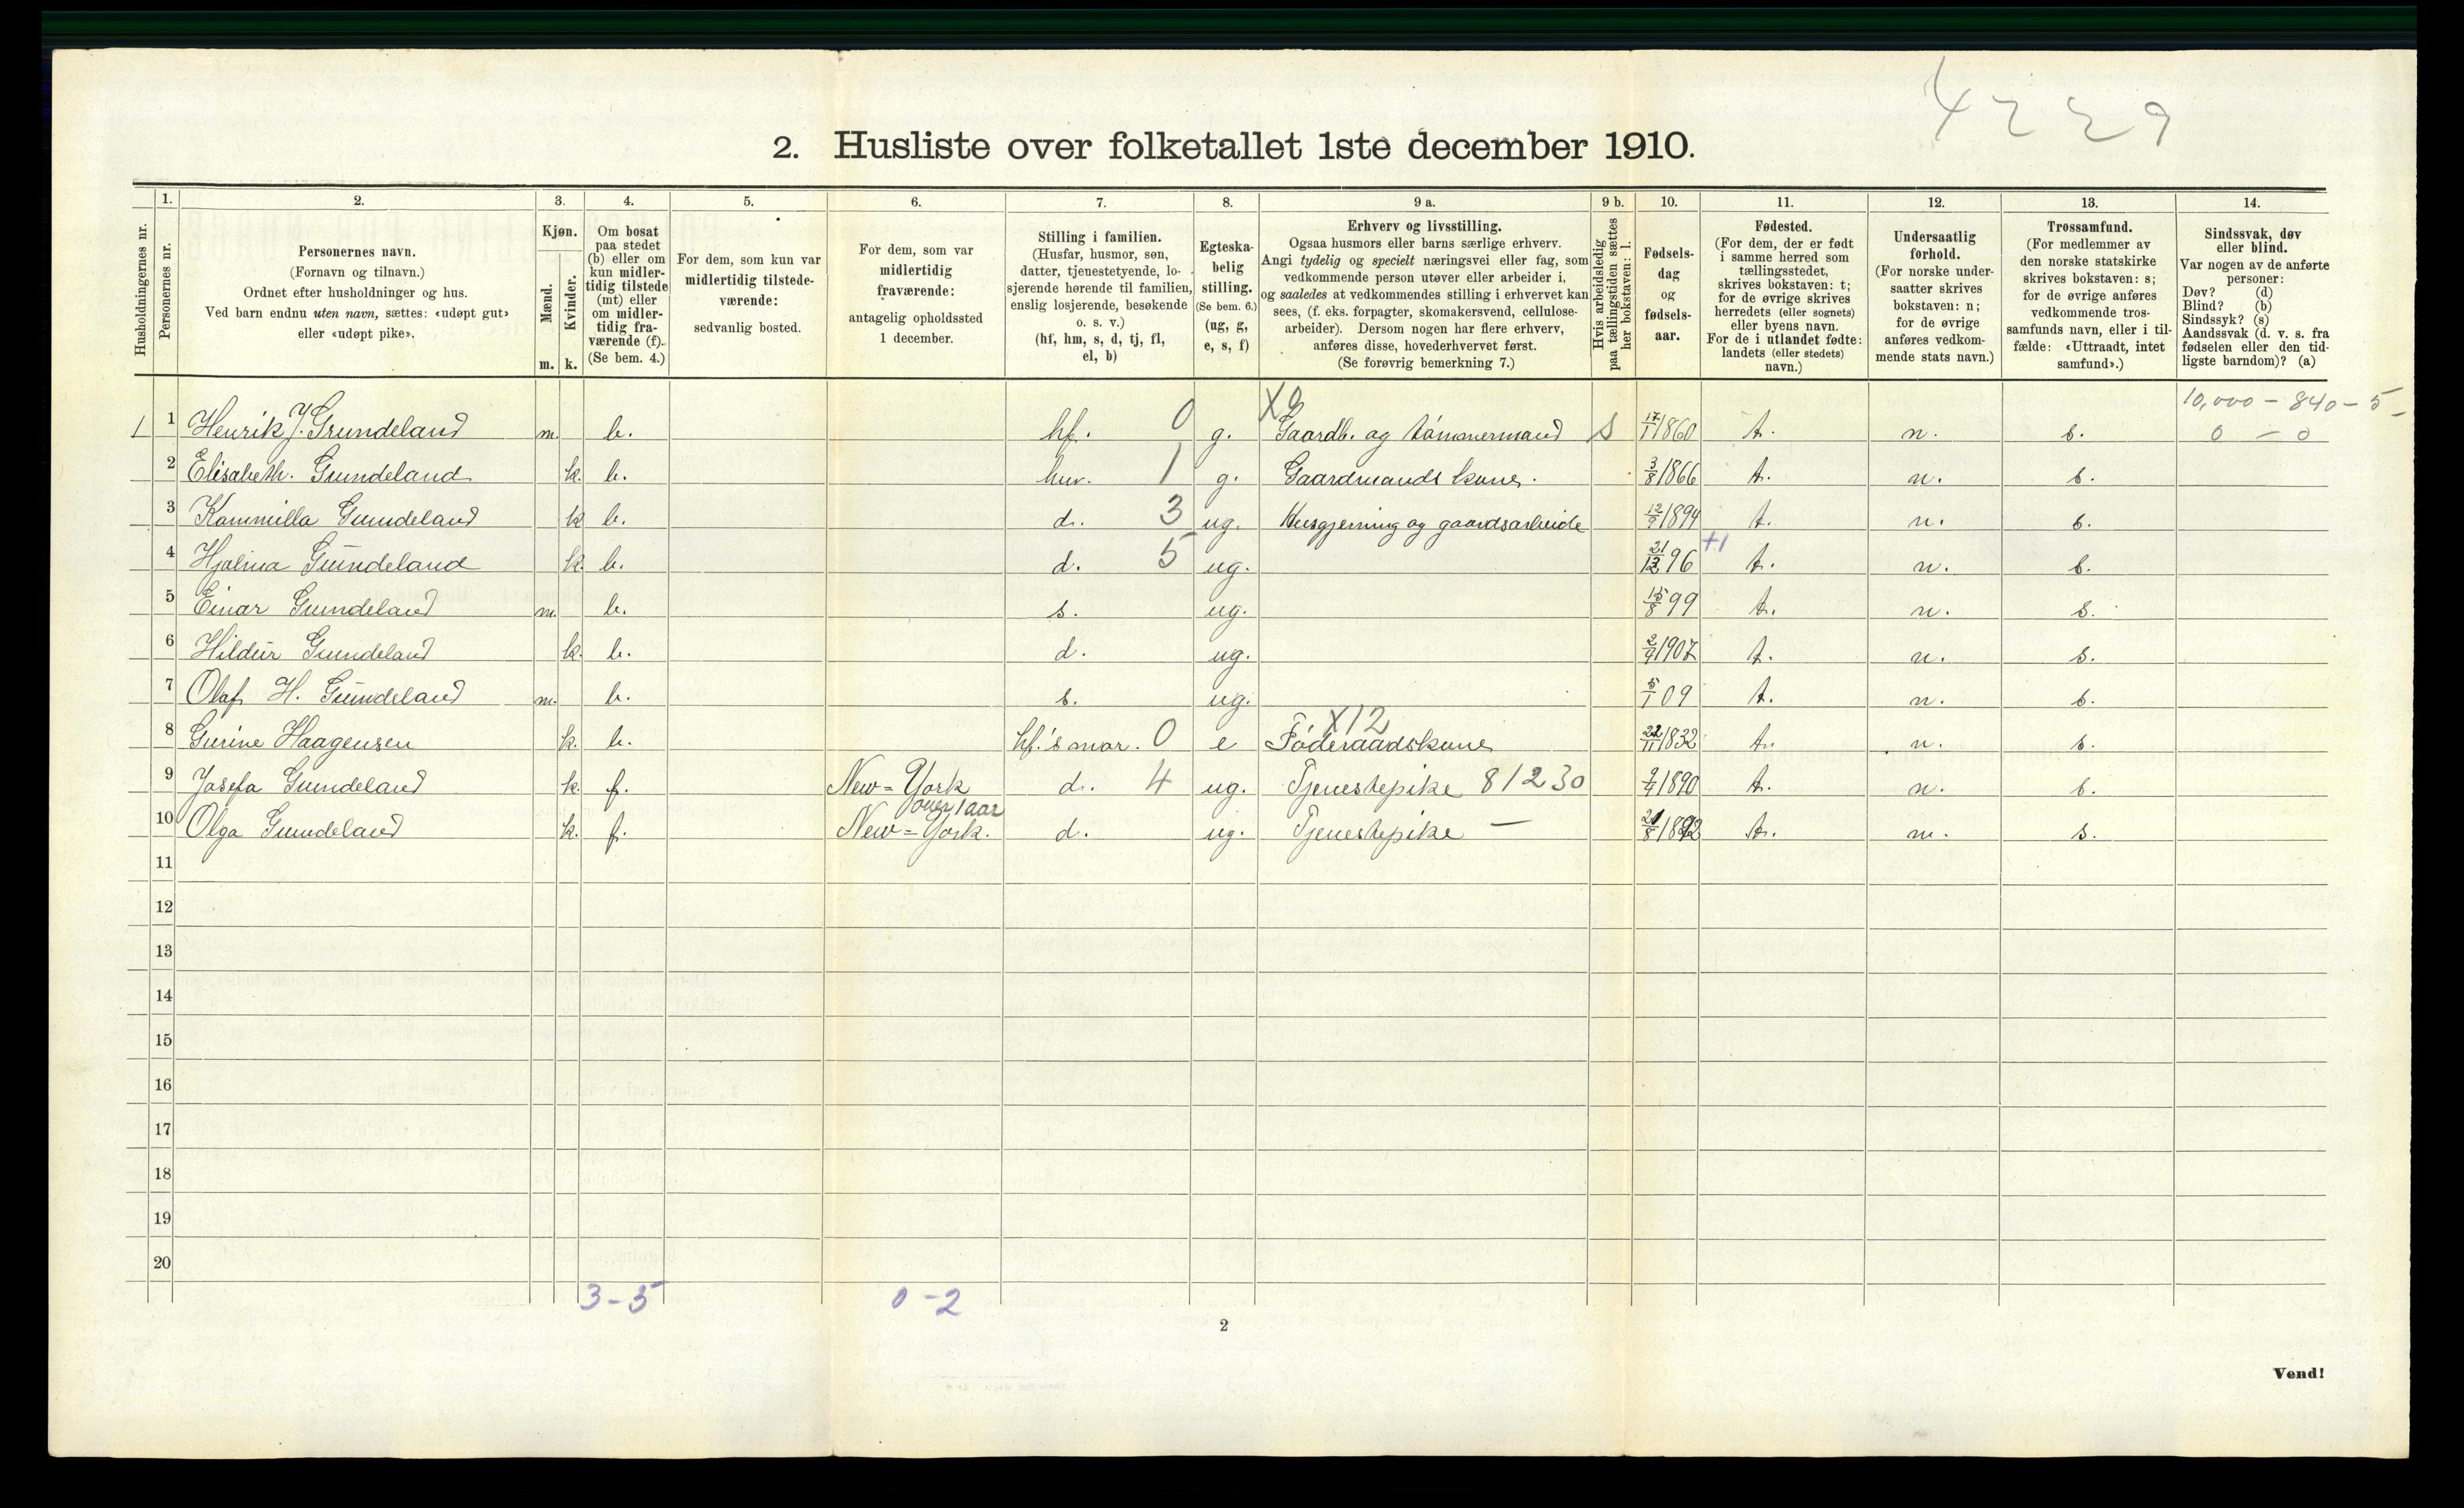 4229
2. Husliste over folketallet 1ste december 1910.
Husholdningernes nr.
1.
Personernes nr.
2.
Personernes navn.
(Fornavn og tilnavn.)
Ordnet efter husholdninger og hus.
Ved barn endnu uten navn, sættes: «udøpt gut»
eller «udøpt pike».
3.
Kjøn.
Mænd.
Kvinder.
m. k.
4.
Om bosat
paa stedet
(b) eller om
kun midler-
tidig tilstede
(mt) eller
om midler-
tidig fra-
værende (f).
(Se bem. 4.)
5.
For dem, som kun var
midlertidig tilstede-
værende:
sedvanlig bosted.
6.
For dem, som var
midlertidig
fraværende:
antagelig opholdssted
1 december.
7.
Stilling i familien.
(Husfar, husmor, søn,
datter, tjenestetyende, lo-
sjerende hørende til familien,
enslig losjerende, besøkende
o. s. v.)
(hf, hm, s, d, tj, fl,
el, b)
8.
Egteska-
belig
stilling.
(Se bem. 6.)
(ug, g,
e, s, f)
9 a.
Erhverv og livsstilling.
Ogsaa husmors eller barns særlige erhverv.
Angi tydelig og specielt næringsvei eller fag, som
vedkommende person utøver eller arbeider i,
og saaledes at vedkommendes stilling i erhvervet kan
sees, (f. eks. forpagter, skomakersvend, cellulose-
arbeider). Dersom nogen har flere erhverv,
anføres disse, hovederhvervet først.
(Se forøvrig bemerkning 7.)
9 b.
Hvis arbeidsledig
paa tællingstiden sættes
her bokstaven: l.
10.
Fødsels-
dag
og
fødsels-
aar.
11.
Fødested.
(For dem, der er født
i samme herred som
tællingsstedet,
skrives bokstaven: t;
for de øvrige skrives
herredets (eller sognets)
eller byens navn.
For de i utlandet fødte:
landets (eller stedets)
navn.)
12.
Undersaatlig
forhold.
(For norske under-
saatter skrives
bokstaven: n;
for de øvrige
anføres vedkom-
mende stats navn.)
13.
Trossamfund.
(For medlemmer av
den norske statskirke
skrives bokstaven: s;
for de øvrige anføres
vedkommende tros-
samfunds navn, eller i til-
fælde: «Uttraadt, intet
samfund».)
14.
Sindssvak, døv
eller blind.
Var nogen av de anførte
personer:
Døv? (d)
Blind? (b)
Sindssyk? (s)
Aandssvak (d. v. s. fra
fødselen eller den tid-
ligste barndom)? (a)
10,000 - 840 - 5 -
1 1 Henrik J. Grundeland m. b. hf. 0 g. X9 Gaardb. og tømmermand S 17/1 1860 t. n. s. 0 - 0
2 Elisabeth. Grundeland k. b. hm. 1 g. Gaardmands kone. 3/8 1866 t. n. s.
3 Kammilla Grundeland k b. d. 3 ug. Husgjerning og gaardsarbeide 12/9 1894 t. n. s.
4 Hjalma Grundeland k. b. d. 5 ug. 21/12 96 +1 t. n. s.
5 Einar Grundeland m. b. s. ug. 15/8 99 t. n. s.
6 Hildur Grundeland k. b. d. ug. 2/9 1907 t. n. s.
7 Olaf H. Grundeland m. b. s. ug. 5/1 09 t. n. s.
8 Gurine Haagensen k. b. hf.'s mor. 0 e X12 Føderaadskone 22/11 1832 t. n. s.
9 Josefa Grundeland k. f. New=York d. 4 ug. Tjenestepike 81230 9/4 1890 t. n. s.
over 1 aar
10 Olga Grundeland k. f. New=York. d. ug. Tjenestepike — 21/8 1892 t. n. s.
11
12
13
14
15
16
17
18
19
20
3-5 0-2
2
Vend!